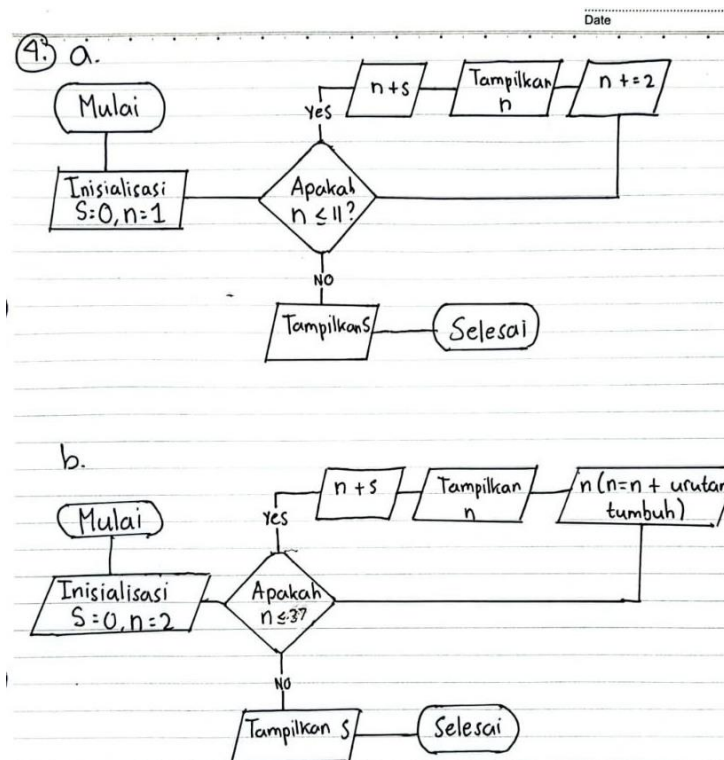 Date
4. a.
Mulai
Inisialisasi
S=0, n=1
Apakah
n ≤ 11?
Yes
n+s
Tampilkan
n
n +=2
NO
Tampilkan S
Selesai
b.
Mulai
Inisialisasi
S=0, n=2
Apakah
n ≤ 37
Yes
n + s
Tampilkan
n
n (n=n + urutan
tumbuh)
NO
Tampilkan S
Selesai